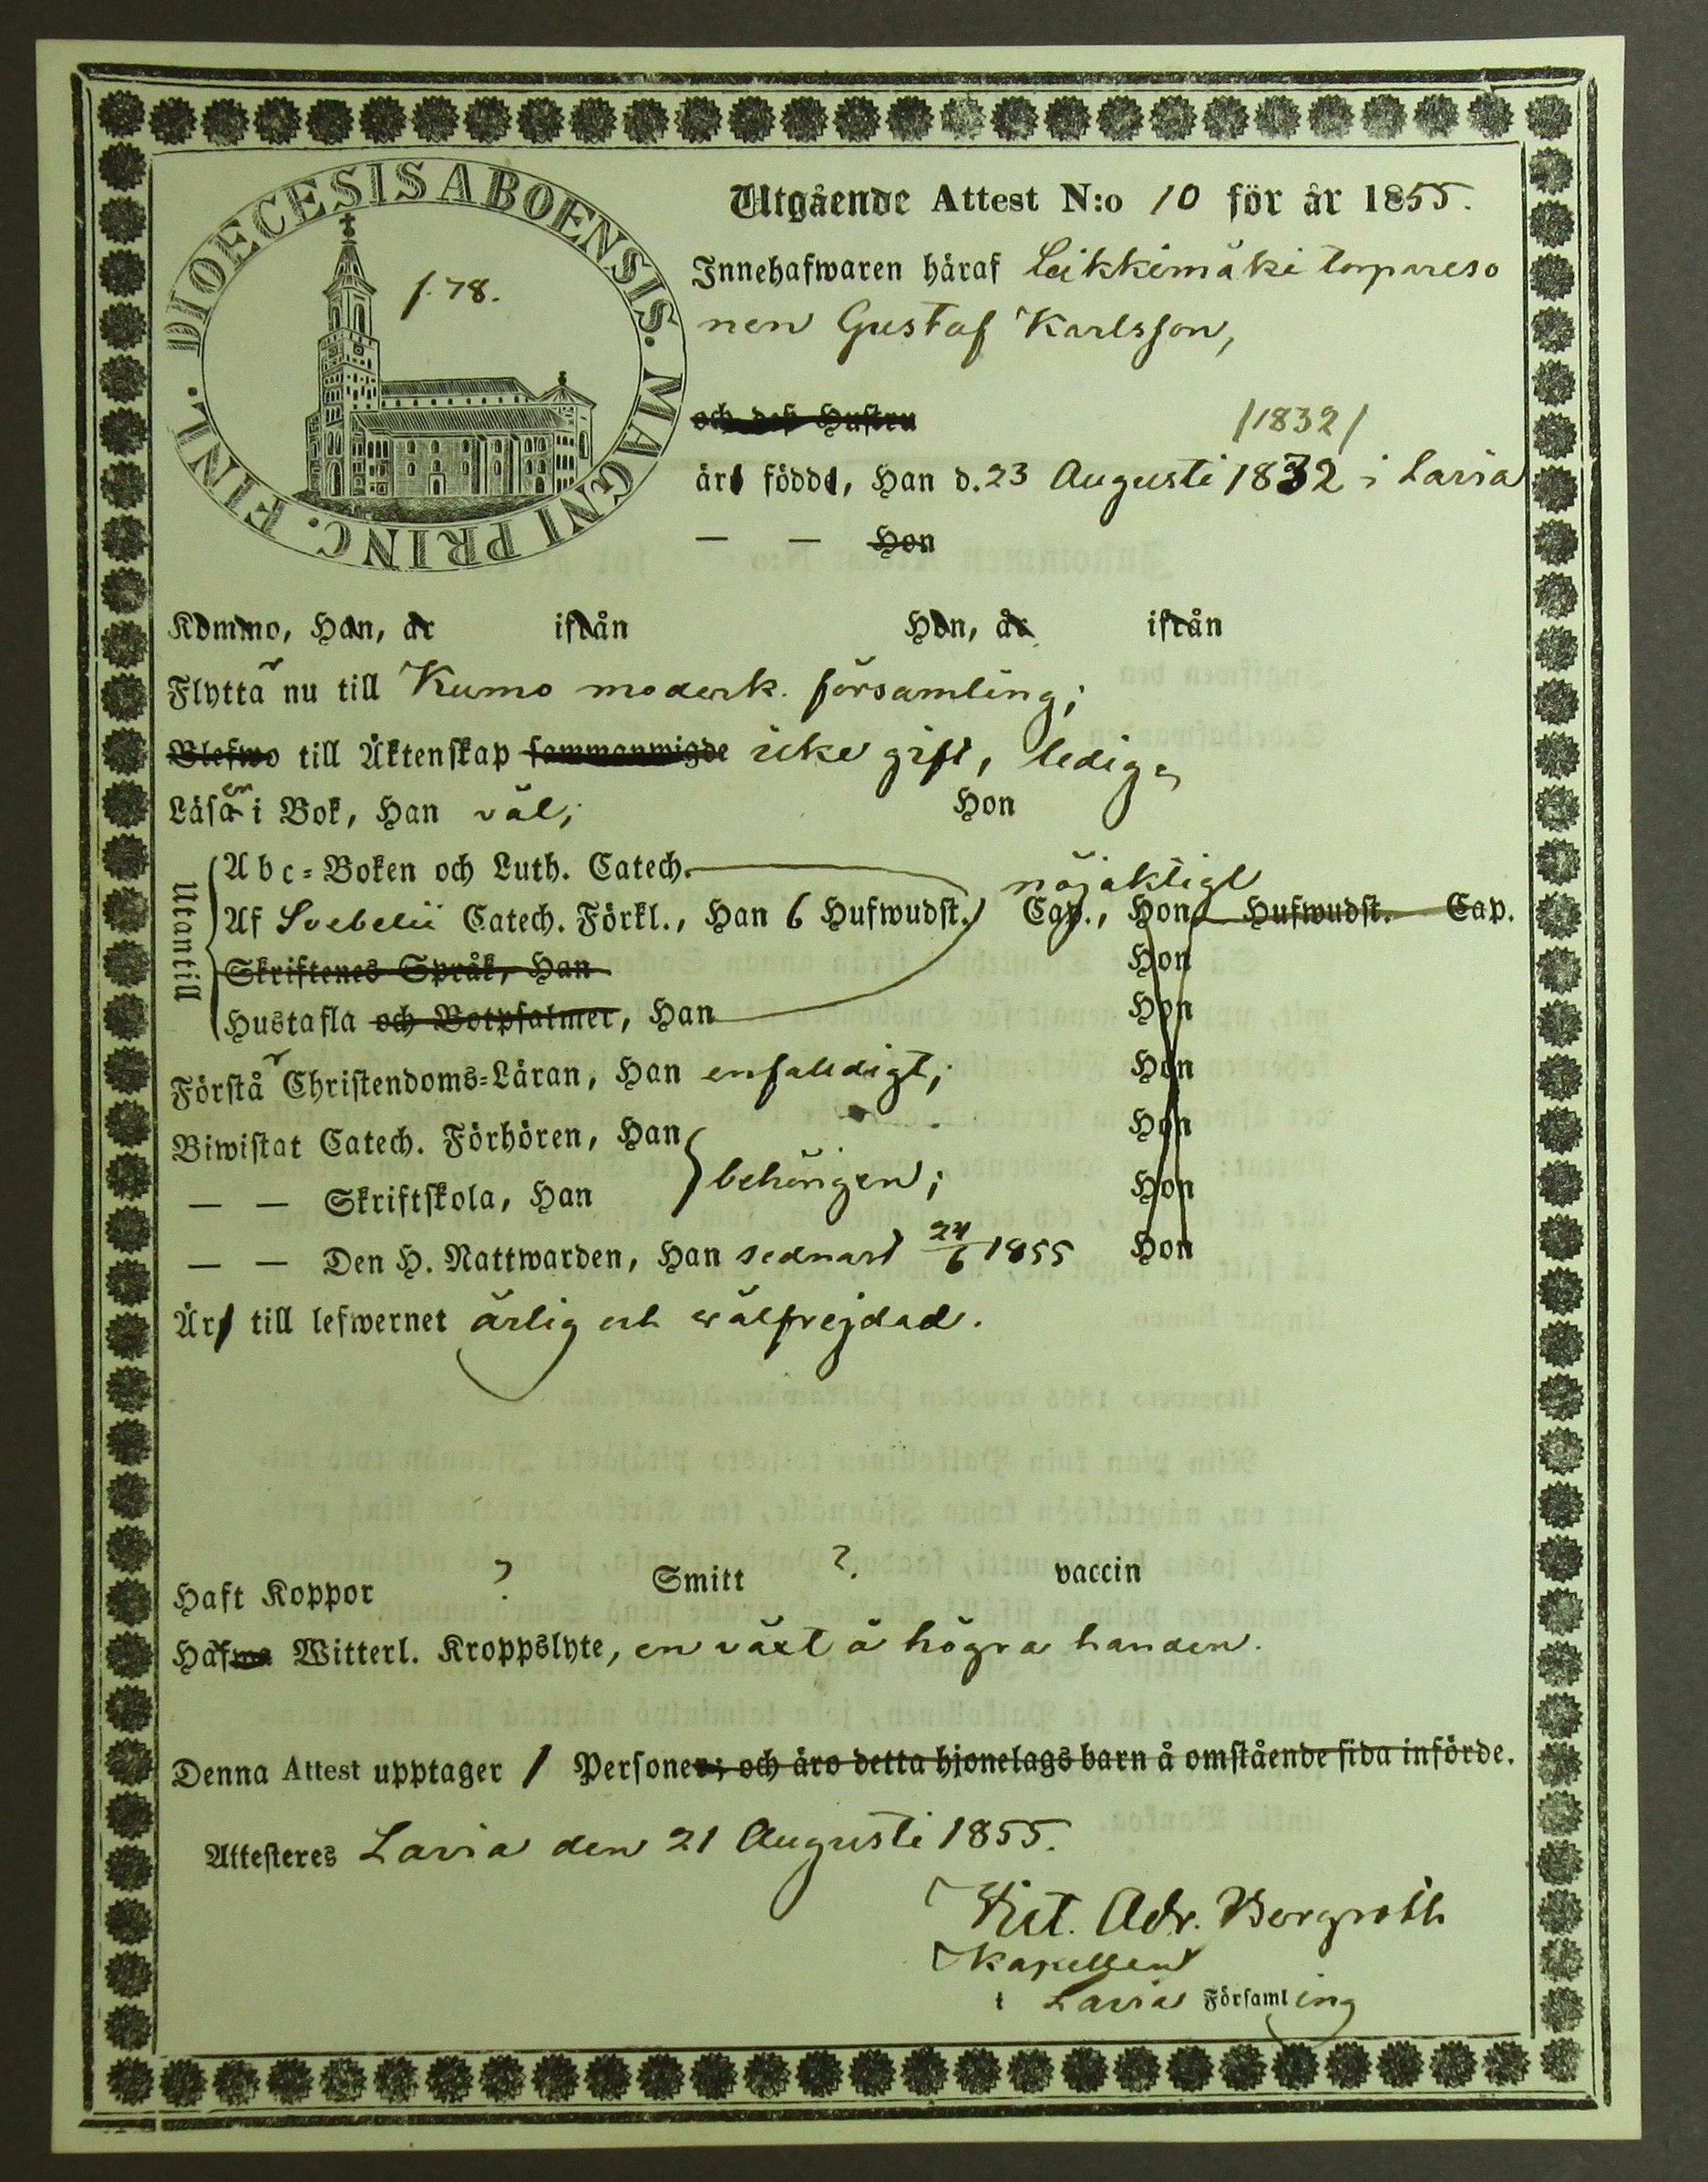 DIOECESIS ABOENSIS. MAGNI PRINC. FINL.
f. 78.
Utgående Attest N:o 10 för år 1855.
Innehafwaren häraf Leikkimäki torpareso
nen Gustaf Karlsson,
och deß Hustru
/1832/
äro födde, Han d. 23 Augusti 1832 i Lavia
— — Hon
Kommo, Han, år ifrån Hon, år ifrån
Flyttar nu till Kumo moderk. församling;
Blefwo till Äktenskap sammanwigde icke gift, ledig,
Läsa en i Bok, Han väl; Hon
Utantill
Abc-Boken och Luth. Catech.
nöjaktigt
Af Svebelii Catech. Förkl., Han 6 Hufwudst. Cap., Hon Hufwudst. Cap.
Skriftenes Språk, Han Hon
Hustafla och Botpsalmer, Han Hon
Förstår Christendoms-Läran, Han enfaldigt; Hon
Biwistat Catech. Förhören, Han Hon
behörigen;
— — Skriftskola, Han Hon
— — Den H. Nattwarden, Han sednast 24/6 1855 Hon
Äro till lefwernet ärlig och välfrejdad.
Haft Koppor ? Smitt ?. vaccin
Hafwa Witterl. Kroppslyte, en växt å högra handen.
Denna Attest upptager 1 Personer; och äro detta hjonelags barn å omstående sida införde.
Attesteres Lavia den 21 Augusti 1855.
Vict. Adr. Bergroth
Kapellan
i Lavia Församling